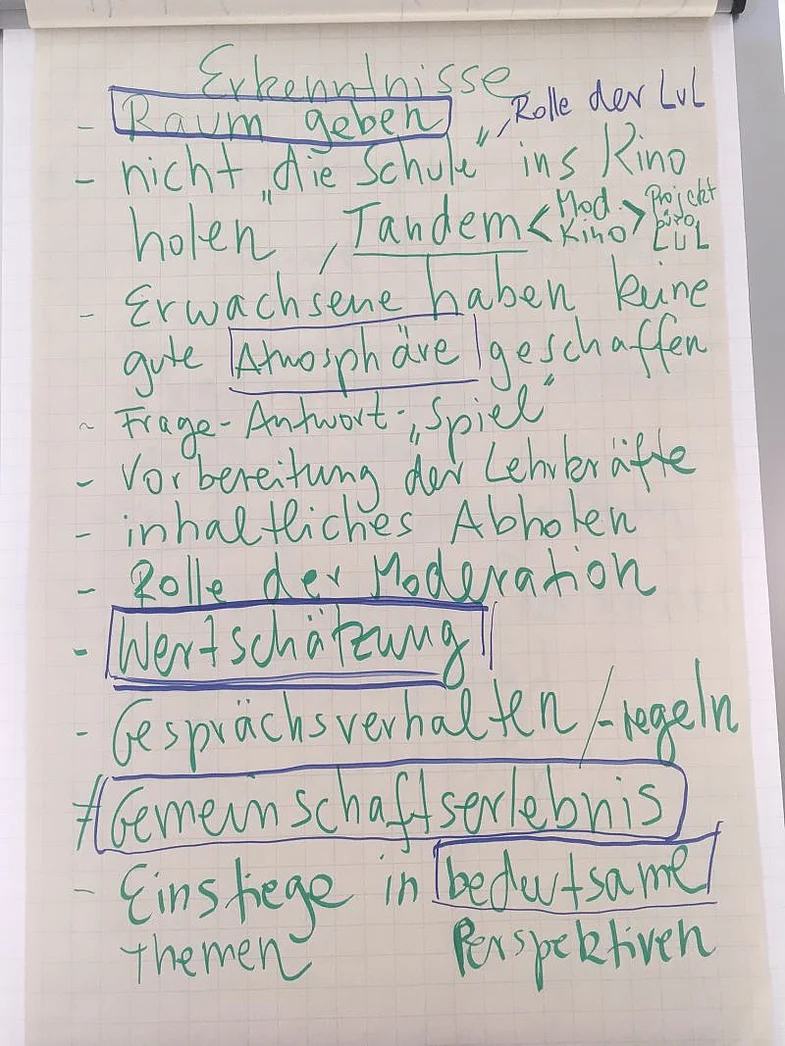 Erkenntnisse
- Raum geben , Rolle der LuL
- nicht „die Schule" ins Kino
holen , Tandem < Mod. Kino > Projektbüro, LuL
- Erwachsene haben keine
gute Atmosphäre geschaffen
- Frage-Antwort-„Spiel"
- Vorbereitung der Lehrkräfte
- inhaltliches Abholen
- Rolle der Moderation
- Wertschätzung
- Gesprächsverhalten / -regeln
≠ Gemeinschaftserlebnis
- Einstiege in bedeutsame
Themen Perspektiven